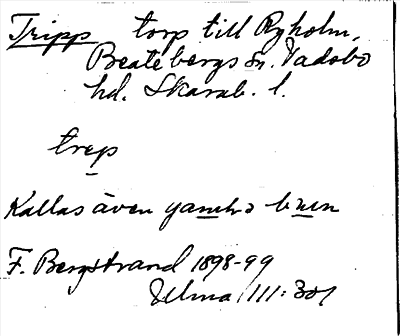 Tripp torp till Ryholm,
Beatebergs sn. Vadsbo
hd. Skarab. l.
trep
Kallas även gamla
F. Bergstrand 1898-99
Ulma 111:301